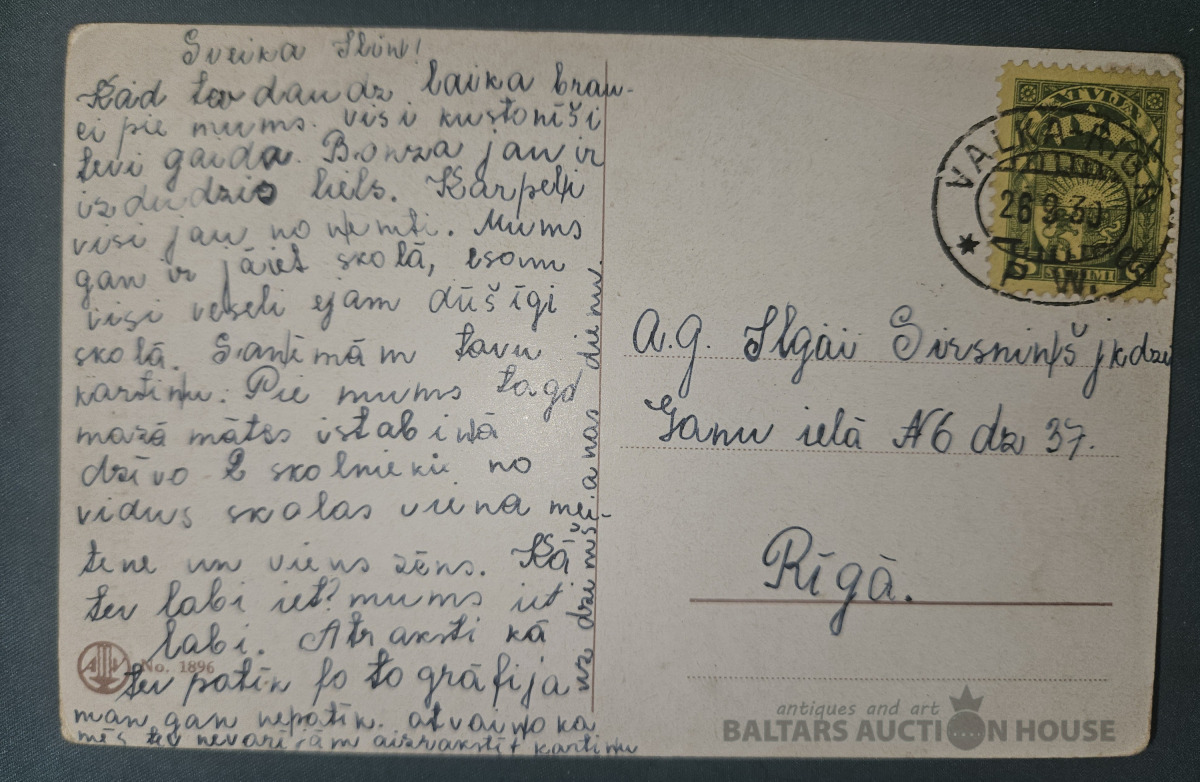 Sveika Ilin!
Kad tev daudz laika brau-
ci pie mums. visi kustonīši
tevi gaida. Bonza jau ir
izdudzis liels. Kārpeļi
visi jau no ņemti. Mums
gan ir jāiet skolā, esam
visi veseli ejam dūšīgi
skolā. Saņēmām tavu
kartiņu. Pie mums tagd
mazā mātes istabiņā
dzīvo 2 skolnieki no
vidus skolas viena mei-
tene un viens zēns. Kā
tev labi iet? mums iet
labi. Atraksti kā
tev patīk fotogrāfija
man gan nepatīk. atvaiņo ka
mēs tev nevarējām aizrakstīt kartiņu
uz dzimš anas dienu.
No. 1896
LATVIJA
VALKA-RIGA
26 9.30
P. W.
A.g. Ilgai Sirsniņš jkdzei
Ganu ielā N6 dz 37.
Rīgā.
antiques and art
BALTARS AUCTION HOUSE